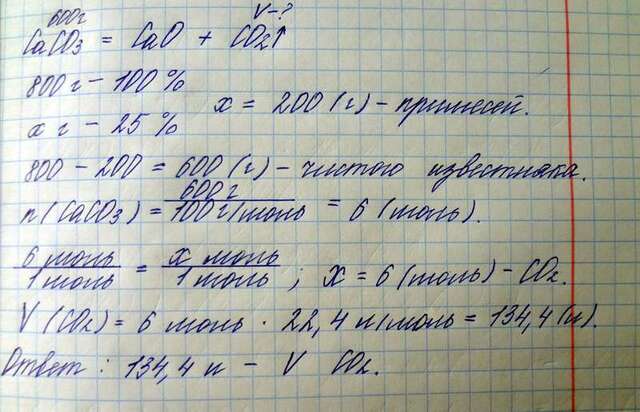 600г V-?
CaCO3 = CaO + CO2↑
800 г – 100 %
x = 200 (г) – примесей.
x г – 25 %
800 – 200 = 600 (г) – чистого известняка.
600 г
n (CaCO3) = 100 г/моль = 6 (моль).
6 моль = x моль
1 моль 1 моль ; x = 6 (моль) – CO2.
V (CO2) = 6 моль · 22,4 л/моль = 134,4 (л).
Ответ : 134,4 л – V CO2.